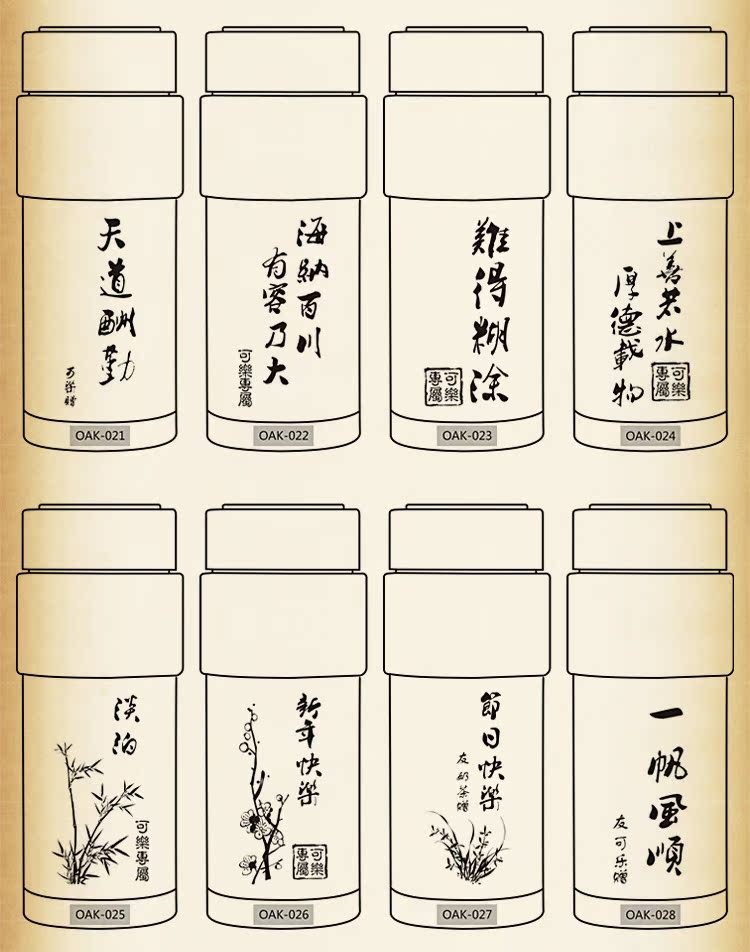 天道酬勤
可樂贈
OAK-021
海納百川
有容乃大
可樂專屬
OAK-022
難得糊涂
可樂
專屬
OAK-023
上善若水
厚德載物
可樂
專屬
OAK-024
淡泊
可樂專屬
OAK-025
新年快樂
可樂
專屬
OAK-026
節日快樂
友奶茶贈
OAK-027
一帆風順
友可乐贈
OAK-028